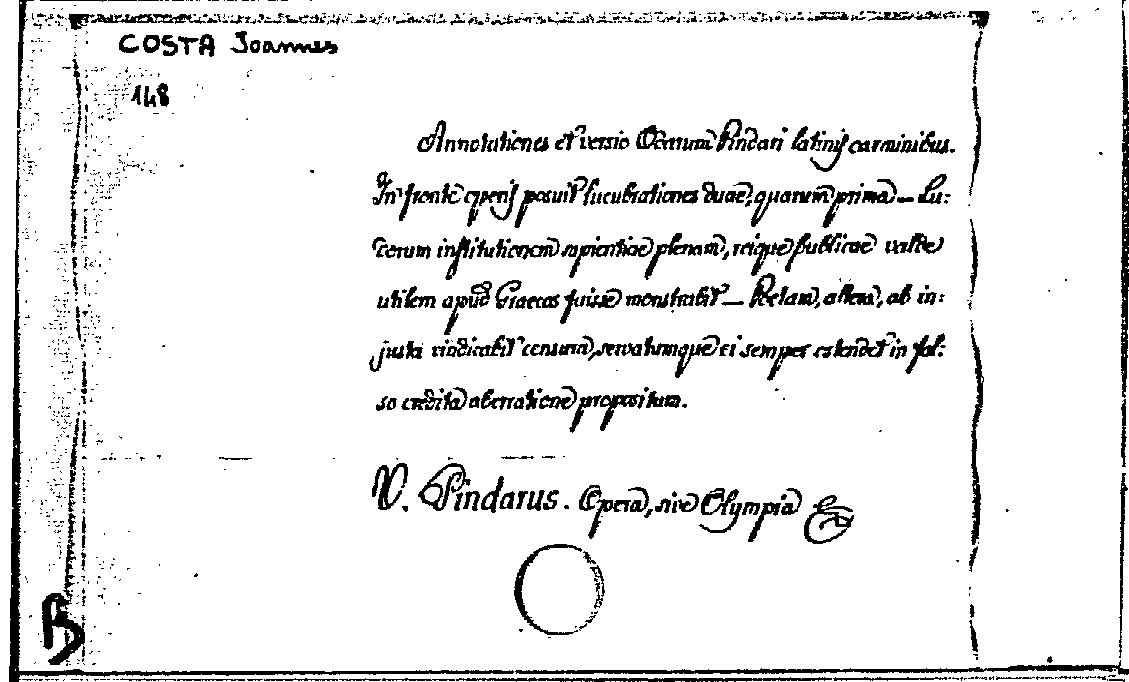 COSTA Joannes
148
Annotationes et versio Odarum Pindari latinis carminibus.
In fronte operis posuit lucubrationes duae, quarum prima — Lu:
dorum institutionem sapientiae plenam, reique publicae valde
utilem apud Graecos fuisse monstrabit — Poetam, altera, ab in:
justa vindicabit censura, servatumque ei semper ostendet in fal:
so credita aberratione propositum.
V. Pindarus. Opera, sive Olympia
B